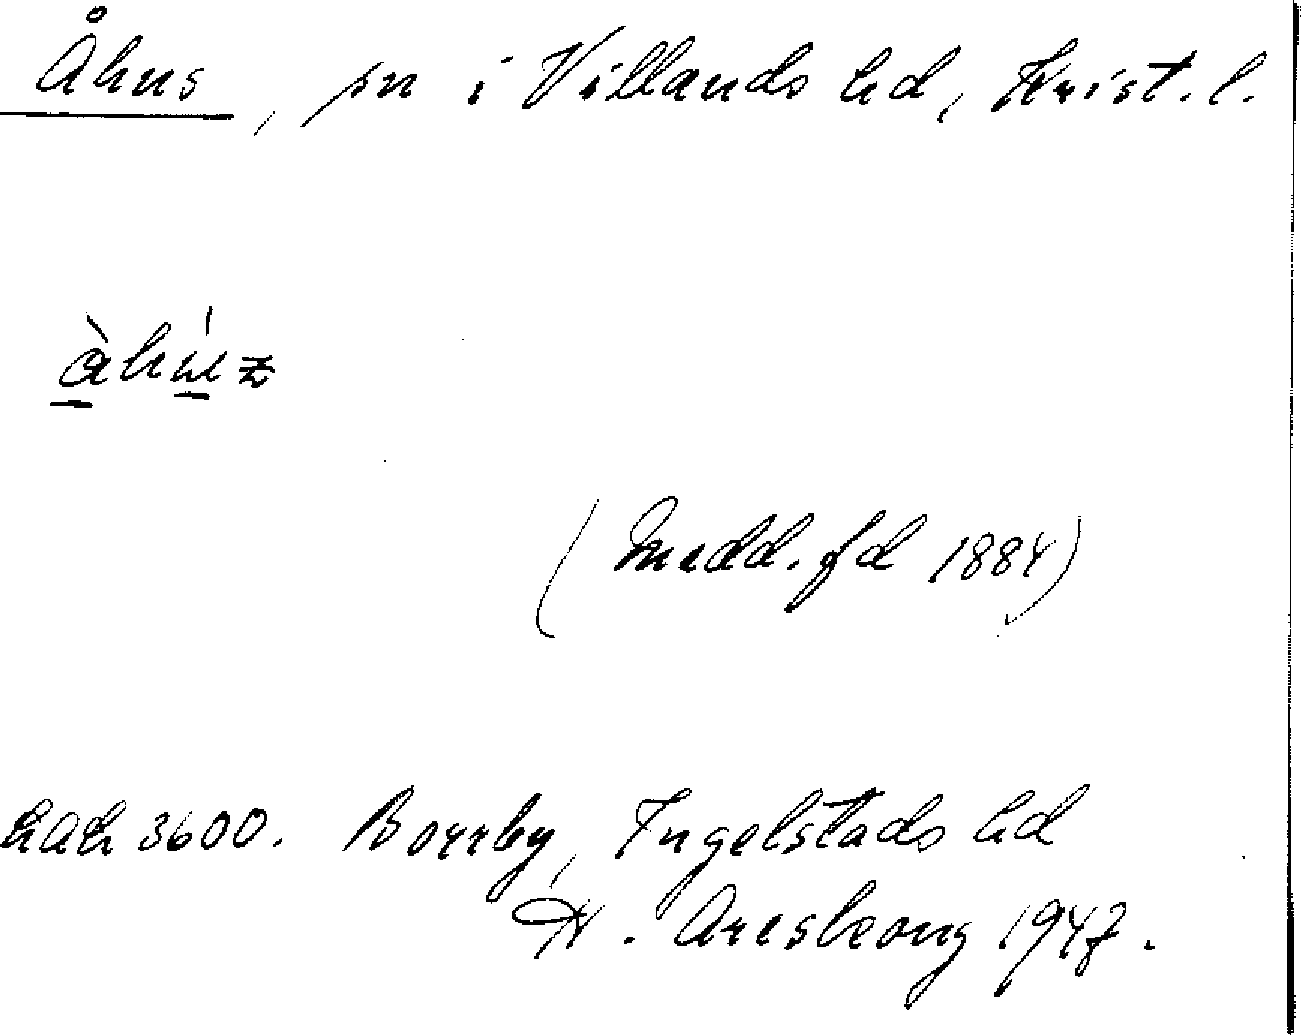 Åhus, sn i Villands hd, Krist. l.
àhúz
(Medd. fd 1884)
LAL 3600. Borrby, Ingelstads hd
H. Areskoug 1947.